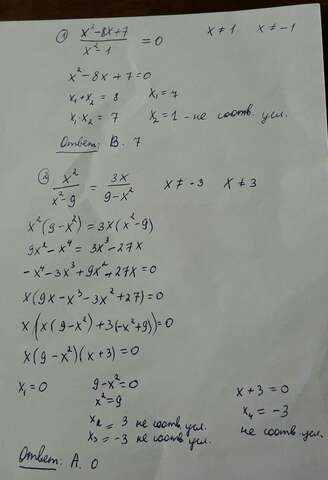 1) (x²-8x+7)/(x²-1) = 0   x≠1   x≠-1
x²-8x+7=0
x₁+x₂ = 8   x₁ = 7
x₁·x₂ = 7   x₂ = 1 - не соотв. усл.
Ответ: В. 7
2) x²/(x²-9) = 3x/(9-x²)   x≠-3   x≠3
x²(9-x²)=3x(x²-9)
9x²-x⁴ = 3x³-27x
-x⁴-3x³+9x²+27x=0
x(9x-x³-3x²+27)=0
x(x(9-x²)+3(-x²+9))=0
x(9-x²)(x+3)=0
x₁=0   9-x²=0   x+3=0
x²=9   x₄=-3
x₂ = 3 не соотв. усл.   не соотв. усл.
x₃ = -3 не соотв. усл.
Ответ: А. 0